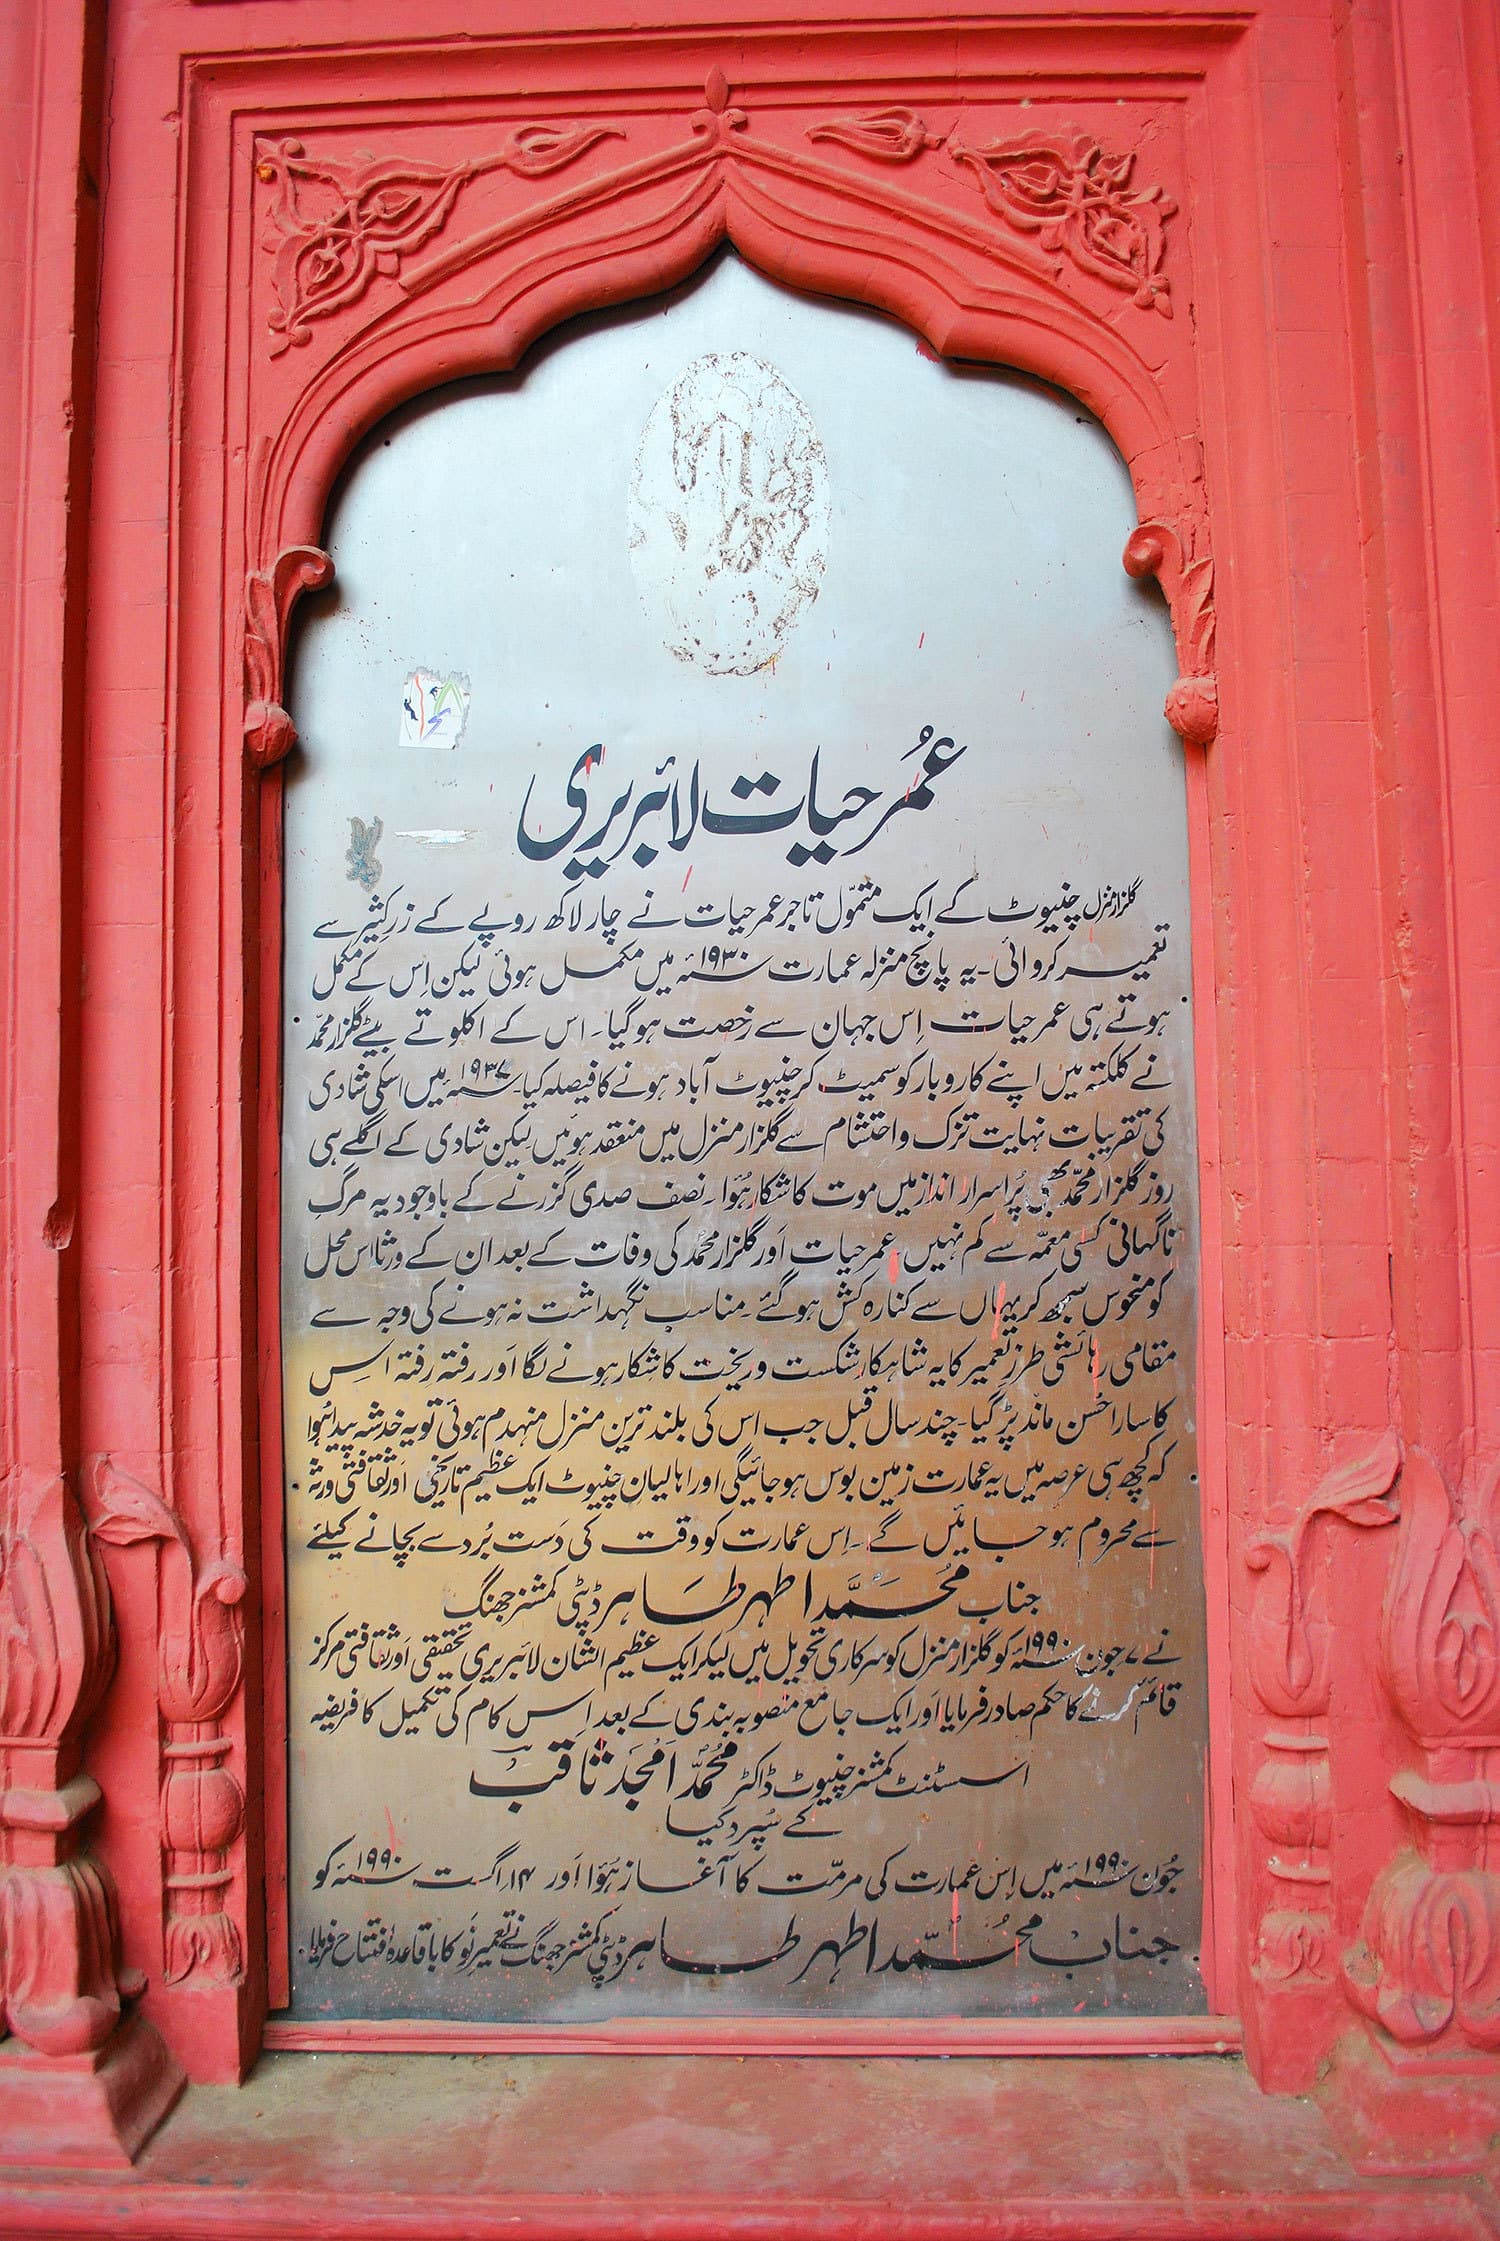 عُمر حیات لائبریری
گلزار منزل چنیوٹ کے ایک متموّل تاجر عمر حیات نے چار لاکھ روپے کے زرِ کثیر سے
تعمیر کروائی۔ یہ پانچ منزلہ عمارت ۱۹۳۰ء میں مکمل ہوئی لیکن اِس کے مکمل
ہوتے ہی عمر حیات اِس جہان سے رخصت ہو گیا۔ اس کے اکلوتے بیٹے گلزار محمّد
نے کلکتہ میں اپنے کاروبار کو سمیٹ کر چنیوٹ آباد ہونے کا فیصلہ کیا۔ ۱۹۳۷ء میں اسکی شادی
کی تقریبات نہایت تزک و احتشام سے گلزار منزل میں منعقد ہوئیں لیکن شادی کے اگلے ہی
روز گلزار محمّد بھی پُراسرار انداز میں موت کا شکار ہُوا۔ نصف صدی گزرنے کے باوجود یہ مرگِ
ناگہانی کسی معمّہ سے کم نہیں۔ عمر حیات اَور گلزار محمّد کی وفات کے بعد ان کے ورثا اس محل
کو منحوس سمجھ کر یہاں سے کنارہ کش ہو گئے۔ مناسب نگہداشت نہ ہونے کی وجہ سے
مقامی رہائشی طرزِ تعمیر کا یہ شاہکار شکست و ریخت کا شکار ہونے لگا اَور رفتہ رفتہ اس
کا سارا حُسن ماند پڑ گیا۔ چند سال قبل جب اس کی بلند ترین منزل منہدم ہوئی تو یہ خدشہ پیدا ہُوا
کہ کچھ ہی عرصہ میں یہ عمارت زمین بوس ہو جائیگی اور اہالیانِ چنیوٹ ایک عظیم تاریخی اَور ثقافتی ورثہ
سے محروم ہو جائیں گے۔ اِس عمارت کو وقت کی دَست بُرد سے بچانے کیلئے
جناب مُحَمَّد اطہر طاہر ڈپٹی کمشنر جھنگ
نے ۷ جون ۱۹۹۰ء کو گلزار منزل کو سرکاری تحویل میں لیکر ایک عظیم الشان لائبریری تحقیقی اَور ثقافتی مرکز
قائم کرنے کا حکم صادر فرمایا اَور ایک جامع منصوبہ بندی کے بعد اِس کام کی تکمیل کا فریضہ
اسسٹنٹ کمشنر چنیوٹ ڈاکٹر مُحَمَّد اَمجَد ثاقب
کے سُپرد کیا
جُون ۱۹۹۰ء میں اِس عمارت کی مرمّت کا آغاز ہُؤا اَور ۱۴ اگست ۱۹۹۰ء کو
جناب مُحمّد اطہر طاہر ڈپٹی کمشنر جھنگ نے تعمیرِ نَو کا باقاعدہ افتتاح فرمایا۔